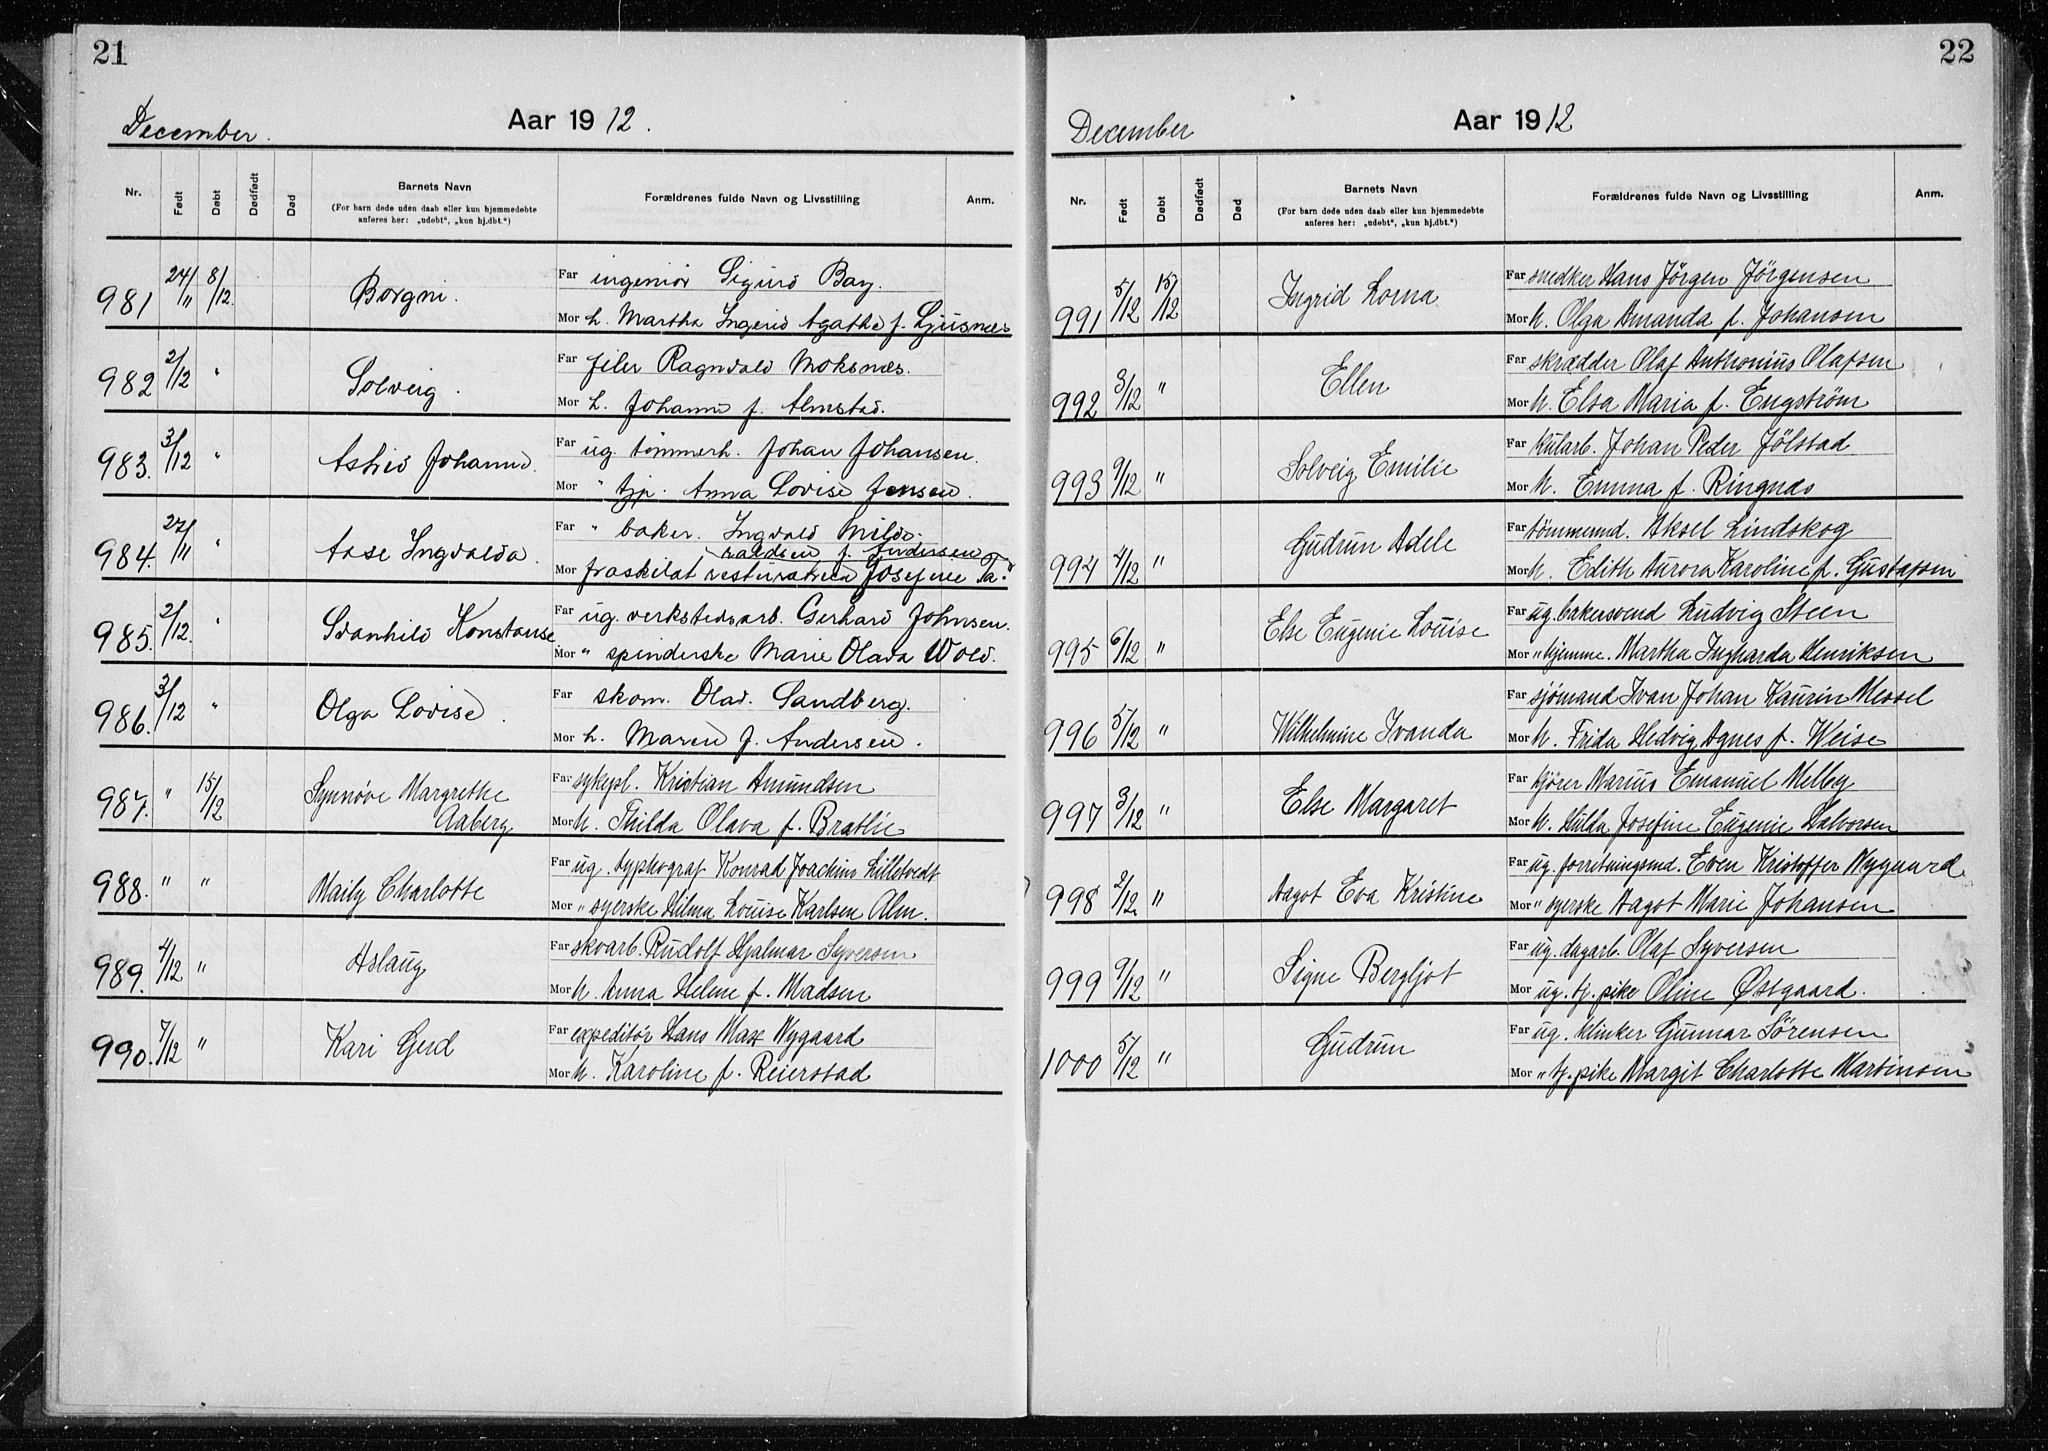 21
December.
Aar 1912.
Nr. Født Døbt Dødfødt Død Barnets Navn Forældrenes fulde Navn og Livsstilling Anm.
(For barn døde uden daab eller kun hjemmedøbte
anføres her: „udøbt“, „kun hj.dbt.“)
981 24/11 8/12. Borgni. Far ingeniør Sigurd Bay.
Mor h. Martha Ingerid Agathe f. Ljusnes
982 2/12 " Solveig. Far filer Ragnvald Moksnes.
Mor h. Johanne f. Almstad.
983. 3/12 " Astrid Johanne. Far ug. tømmerh. Johan Johansen.
Mor " tjp. Anna Lovise Jensen.
984. 27/11 " Aase Ingvalda. Far " baker. Ingvald Mildo.
raldsen f. Andersen
Mor fraskilat Josefine
985. 2/12. " Svanhild Konstanse Far ug. verkstedsarb. Gerhard Johnsen.
Mor " spinderske Marie Olava Wold.
986. 3/12 " Olga Lovise. Far skom. Olav. Sandberg.
Mor h. Maren f. Andersen.
987. " 15/12 Synnøve Margrethe Far sykepl. Kristian Amundsen
Aaberg Mor h. Thilda Olava f. Bratlie
988. " " Maily Charlotte Far ug. typhograf Konrad Joachim Lilletvedt
Mor " syerske Hilma Louise Karlsen Alm.
989. 4/12 " Aslaug Far skoarb. Rudolf Hjalmar Syversen
Mor h. Anna Helene f. Madsen
990. 7/12 " Kari Gerd Far expeditör Hans Max Nygaard
Mor h. Karoline f. Reierstad
22
December
Aar 1912
Nr. Født Døbt Dødfødt Død Barnets Navn Forældrenes fulde Navn og Livsstilling Anm.
(For barn døde uden daab eller kun hjemmedøbte
anføres her: „udøbt“, „kun hj.dbt.“)
991 5/12 15/12 Ingrid Lorna Far snedker Hans Jörgen Jörgensen
Mor h. Olga Amanda f. Johansen
992 3/12 " Ellen Far skrædder Olaf Anthonius Olafsen
Mor h. Elsa Maria f. Engström
993 9/12 " Solveig Emilie Far kularb. Johan Peder Jölstad
Mor h. Emma f. Ringnæs
994 4/12 " Gudrun Adele Far tömmermd. Aksel Lindskog
Mor h. Edith Aurora Karoline f. Gustafson
995 6/12 " Else Eugenie Louise Far ug. bakersvend Ludvig Steen
Mor " hjemme. Martha Ingharda Henriksen
996 5/12 " Wilhelmine Ivanda Far sjömand Ivan Johan Kaurin Messel
Mor h. Frida Hedvig Agnes f. Weise
997 3/12 " Else Margaret Far kjörer Marius Emanuel Melby
Mor h. Hilda Josefine Eugenie Halvorsen
998 2/12. " Aagot Eva Kristine Far ug. forretningsmd. Even Kristoffer Nygaard
Mor " syerske Aagot Marie Johansen
999 9/12 " Signe Bergljot Far ug. dagarb. Olaf Syversen
Mor ug. tj. pike Oline Østgaard.
1000 5/12 " Gudrun Far ug. klinker Gunnar Sörensen
Mor " tj. pike Margit Charlotte Martinsen